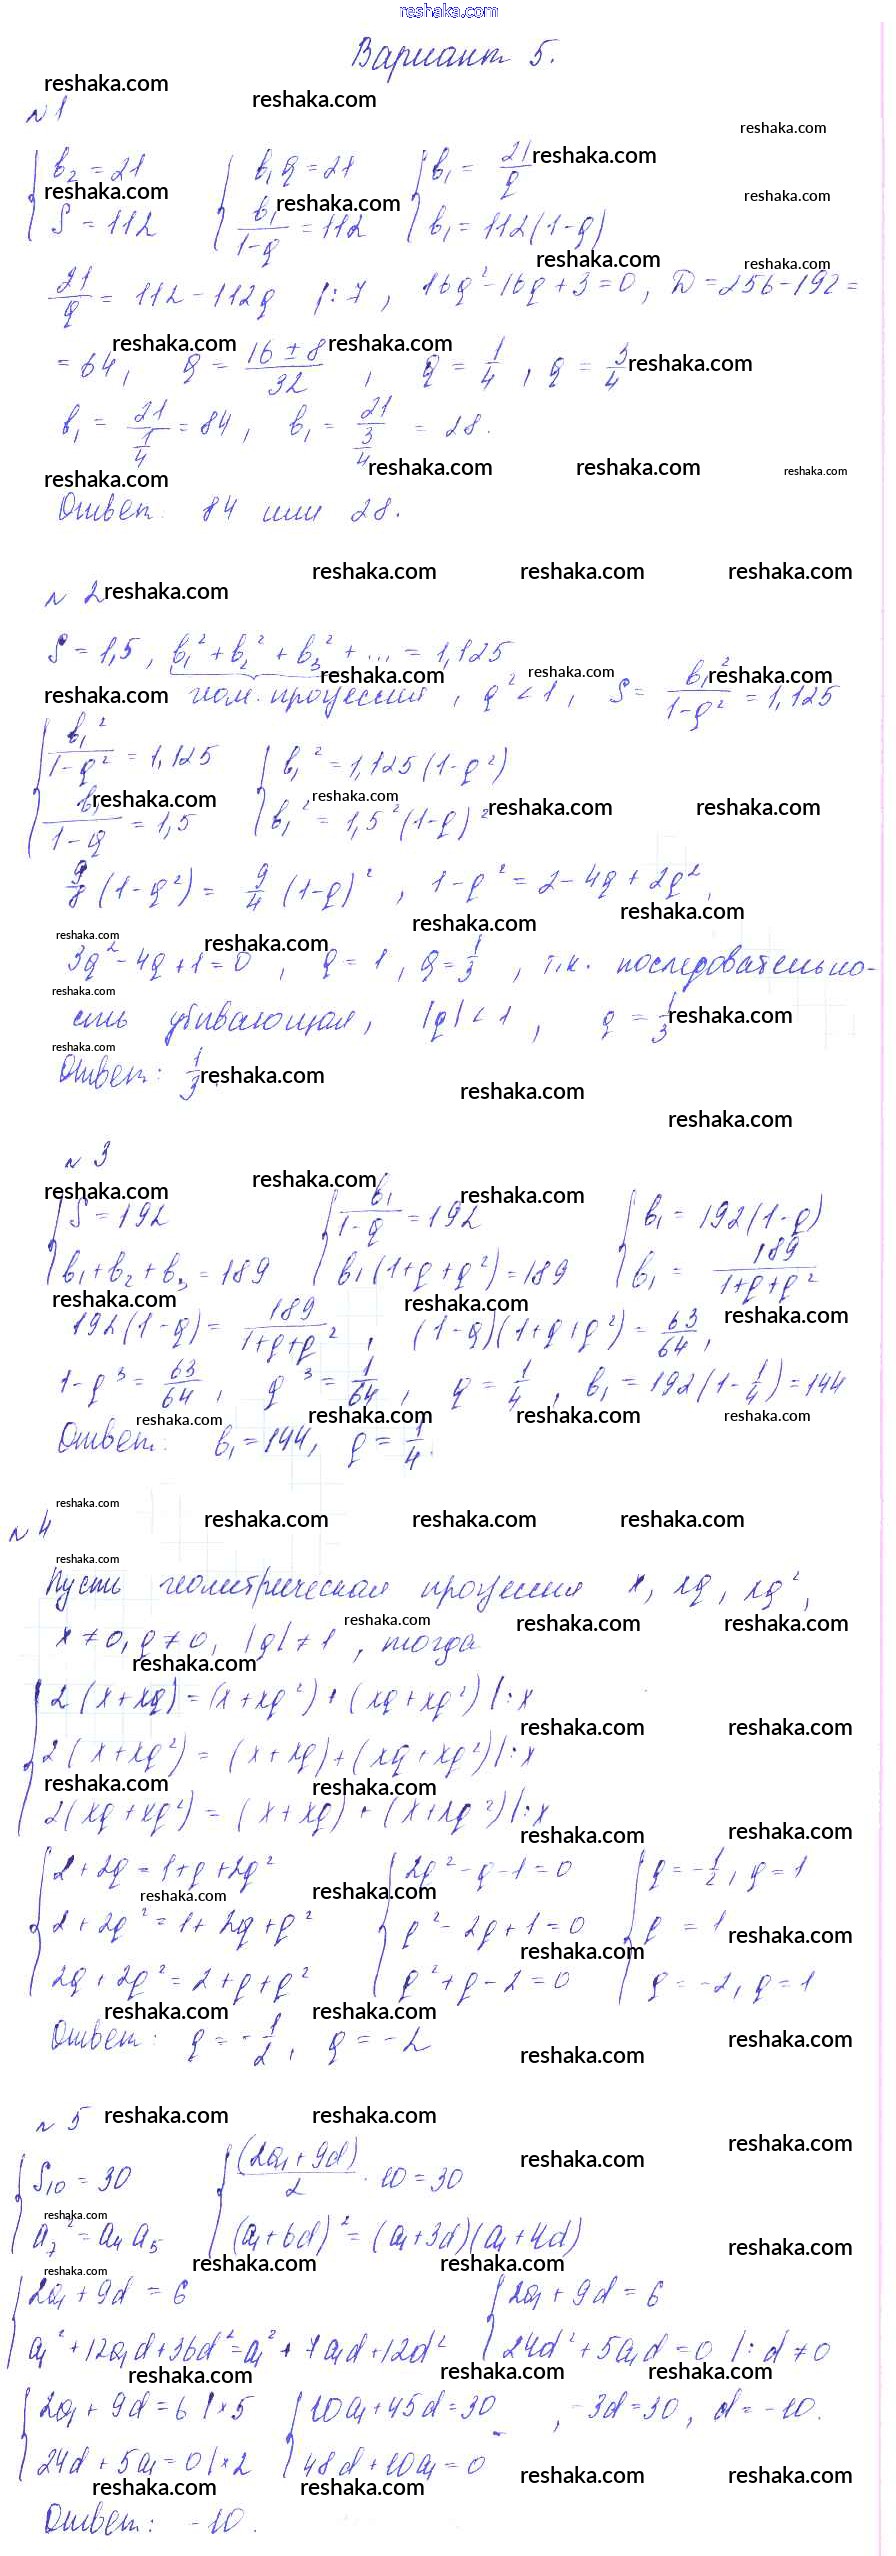 reshaka.com
Вариант 5.
№1
{ b₂ = 21   { b₁q = 21   { b₁ = 21/q
{ S = 112   { b₁/(1-q) = 112   { b₁ = 112(1-q)
21/q = 112 - 112q |:7, 16q² - 16q + 3 = 0, D = 256 - 192 =
= 64, q = (16 ± 8)/32, q = 1/4, q = 3/4
b₁ = 21/(1/4) = 84, b₁ = 21/(3/4) = 28.
Ответ: 84 или 28.
№ 2
S = 1,5, b₁² + b₂² + b₃² + ... = 1,125
геом. прогрессия, q² < 1, S = b₁²/(1-q²) = 1,125
{ b₁²/(1-q²) = 1,125   { b₁² = 1,125(1-q²)
{ b₁/(1-q) = 1,5   { b₁² = 1,5²(1-q)²
9/8 (1-q²) = 9/4 (1-q)², 1-q² = 2-4q+2q²,
3q² - 4q + 1 = 0, q = 1, q = 1/3, т.к. последовательно-
сть убывающая, |q| < 1, q = 1/3
Ответ: 1/3.
№ 3
{ S = 192   { b₁/(1-q) = 192   { b₁ = 192(1-q)
{ b₁+b₂+b₃ = 189   { b₁(1+q+q²) = 189   { b₁ = 189/(1+q+q²)
192(1-q) = 189/(1+q+q²), (1-q)(1+q+q²) = 63/64,
1-q³ = 63/64, q³ = 1/64, q = 1/4, b₁ = 192(1-1/4) = 144
Ответ: b₁ = 144, q = 1/4.
№ 4
Пусть геометрическая прогрессия x, xq, xq²,
x ≠ 0, q ≠ 0, |q| ≠ 1, тогда
{ 2(x+xq) = (x+xq²) + (xq+xq²) |:x
{ 2(x+xq²) = (x+xq) + (xq+xq²) |:x
{ 2(xq+xq²) = (x+xq) + (x+xq²) |:x
{ 2+2q = 1+q+2q²   { 2q²-q-1 = 0   { q = -1/2, q = 1
{ 2+2q² = 1+2q+q²   { q²-2q+1 = 0   { q = 1
{ 2q+2q² = 2+q+q²   { q²+q-2 = 0   { q = -2, q = 1
Ответ: q = -1/2, q = -2
№ 5
{ S₁₀ = 30   { (2a₁+9d)/2 · 10 = 30
{ a₇² = a₄a₅   { (a₁+6d)² = (a₁+3d)(a₁+4d)
{ 2a₁+9d = 6   { 2a₁+9d = 6
{ a₁²+12a₁d+36d² = a₁²+7a₁d+12d²   { 24d²+5a₁d = 0 |:d≠0
{ 2a₁+9d = 6 |×5   { 10a₁+45d = 30, -3d = 30, d = -10.
{ 24d+5a₁ = 0 |×2   { 48d+10a₁ = 0
Ответ: -10.